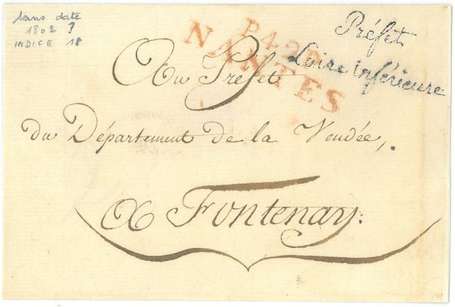 Sans date
1802 ?
INDICE 18
P.42.P.
NANTES
Préfet
Loire inférieure
Au Préfet
du Département de la Vendée,
A Fontenay.